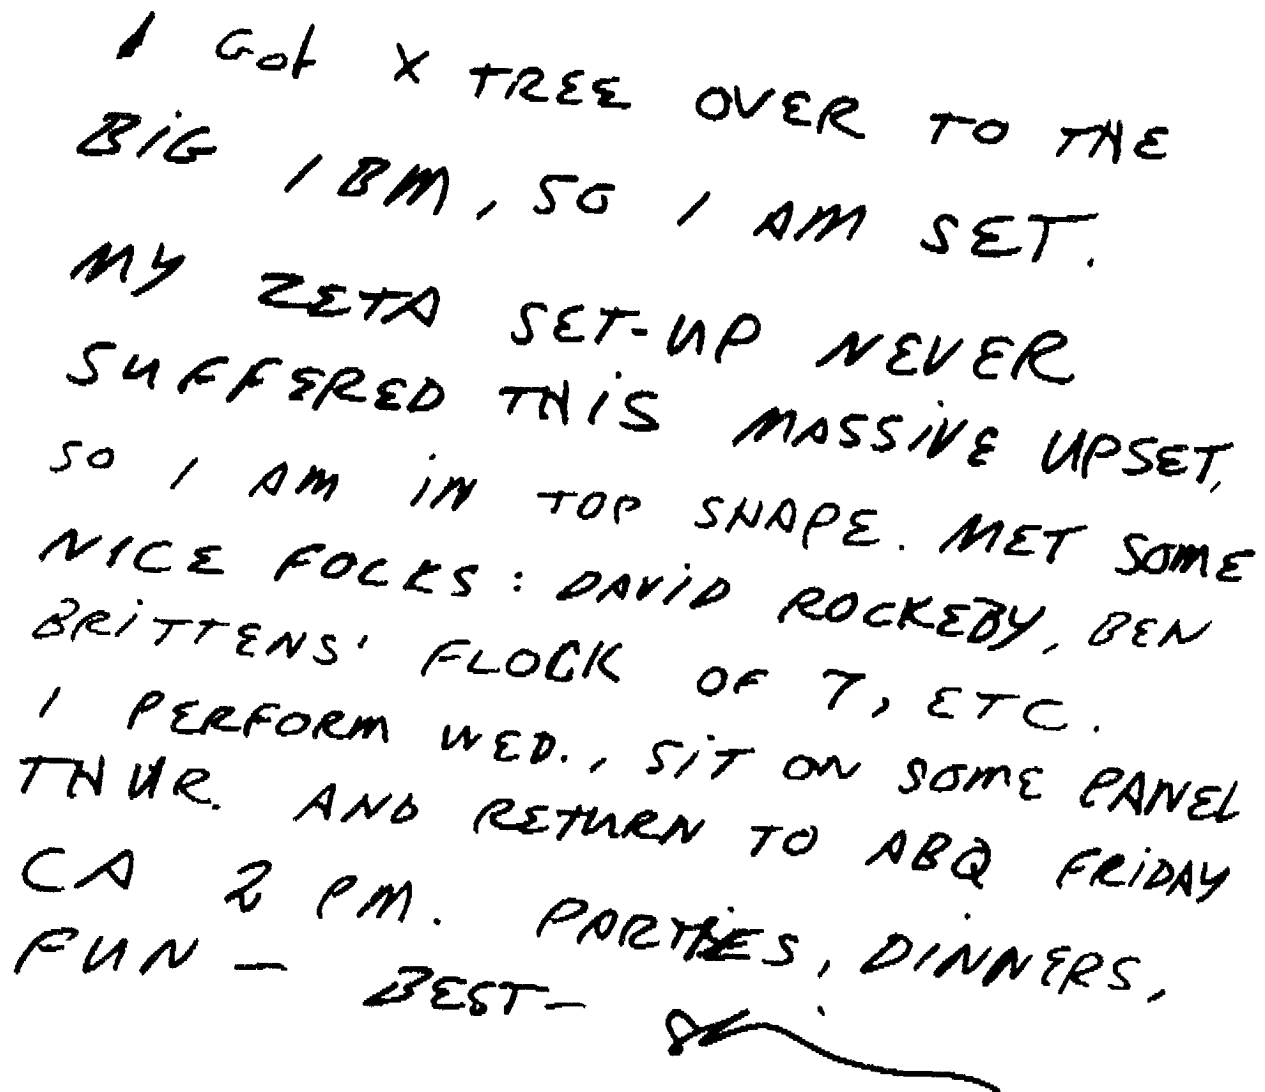 I GOt X TREE OVER TO THE
BIG IBM, SO I AM SET.
MY ZETA SET-UP NEVER
SUFFERED THIS MASSIVE UPSET,
SO I AM IN TOP SHAPE. MET SOME
NICE FOCKS: DAVID ROCKEBY, BEN
BRITTENS' FLOCK OF 7, ETC.
I PERFORM WED., SIT ON SOME PANEL
THUR. AND RETURN TO ABQ FRIDAY
CA 2 PM. PARTIES, DINNERS,
FUN - BEST-